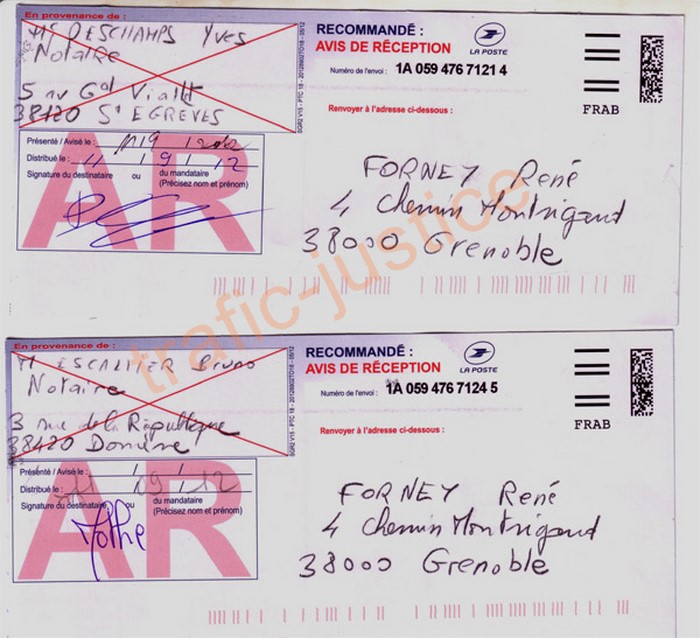 En provenance de :
M DESCHAMPS Yves
Notaire
5 av Gal Viallt
38120 St EGREVES
Présenté / Avisé le : 11/9 / 2012
Distribué le : 11 / 9 / 12
Signature du destinataire ou du mandataire
(Précisez nom et prénom)
AR
RECOMMANDÉ :
AVIS DE RÉCEPTION
LA POSTE
Numéro de l'envoi : 1A 059 476 7121 4
FRAB
Renvoyer à l'adresse ci-dessous :
FORNEY René
4 Chemin Montrigaud
38000 Grenoble
trafic-justice
En provenance de :
M ESCALLIER Bruno
Notaire
3 rue de la République
38420 Domène
Présenté / Avisé le : / /
Distribué le : 11 / 09 / 12
Signature du destinataire ou du mandataire
(Précisez nom et prénom)
AR
RECOMMANDÉ :
AVIS DE RÉCEPTION
LA POSTE
Numéro de l'envoi : 1A 059 476 7124 5
FRAB
Renvoyer à l'adresse ci-dessous :
FORNEY René
4 Chemin Montrigaud
38000 Grenoble